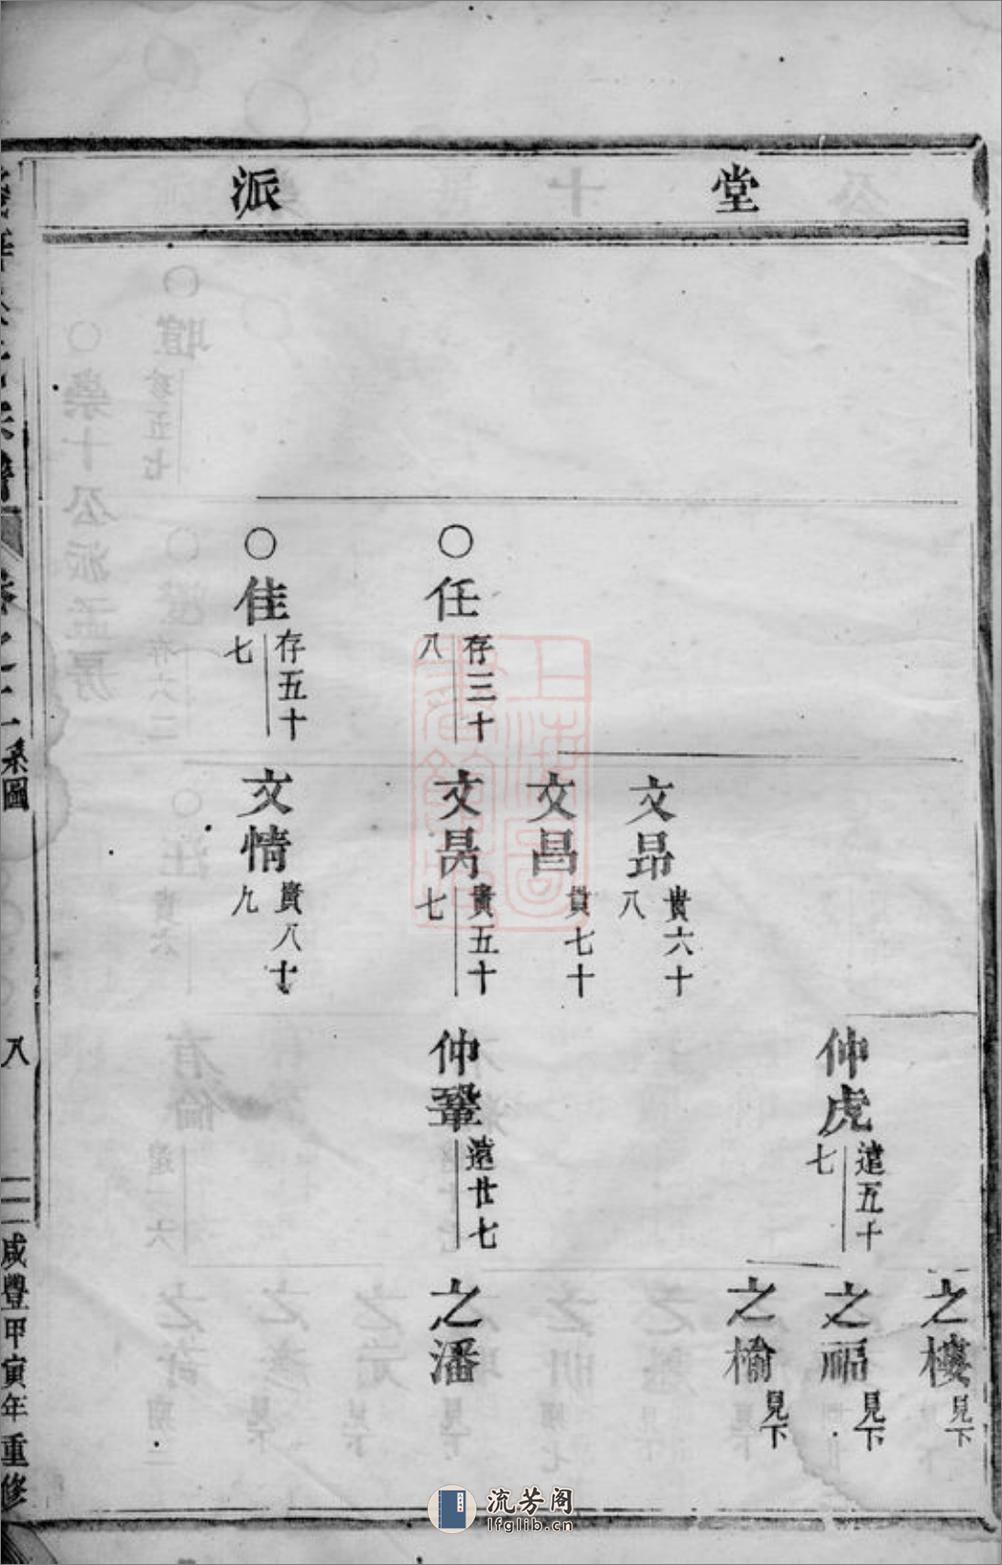 堂派
之樓
見下
仲虎
遠五十
七
之福
見下
之橋
見下
文昂
貴六十
八
文昌
貴七十
任
存三十
八
文昺
貴五十
七
仲鞏
遠廿七
之潘
佳
存五十
七
文情
貴八十
九
卷之十一
系圖
八
咸豐甲寅年重修
流芳阁
lfglib.cn